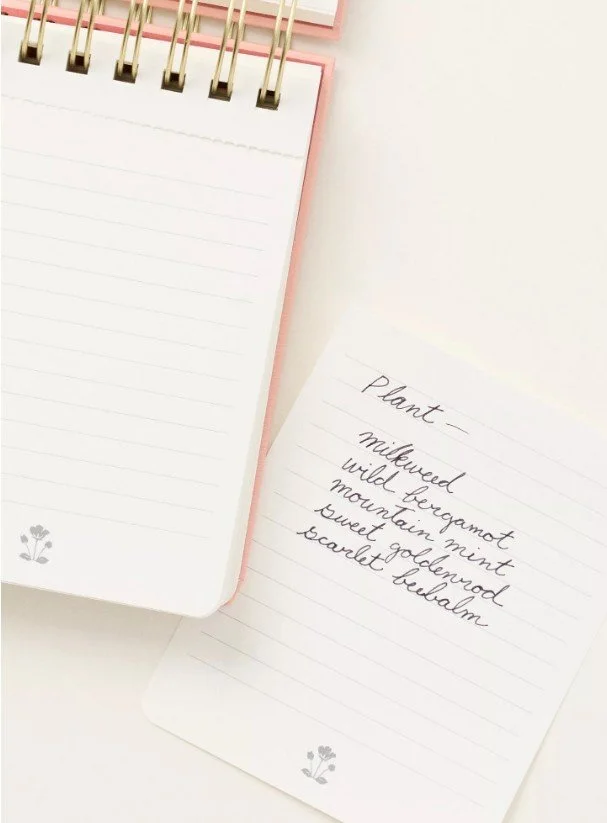 Plant —
milkweed
wild bergamot
mountain mint
sweet goldenrod
scarlet beebalm